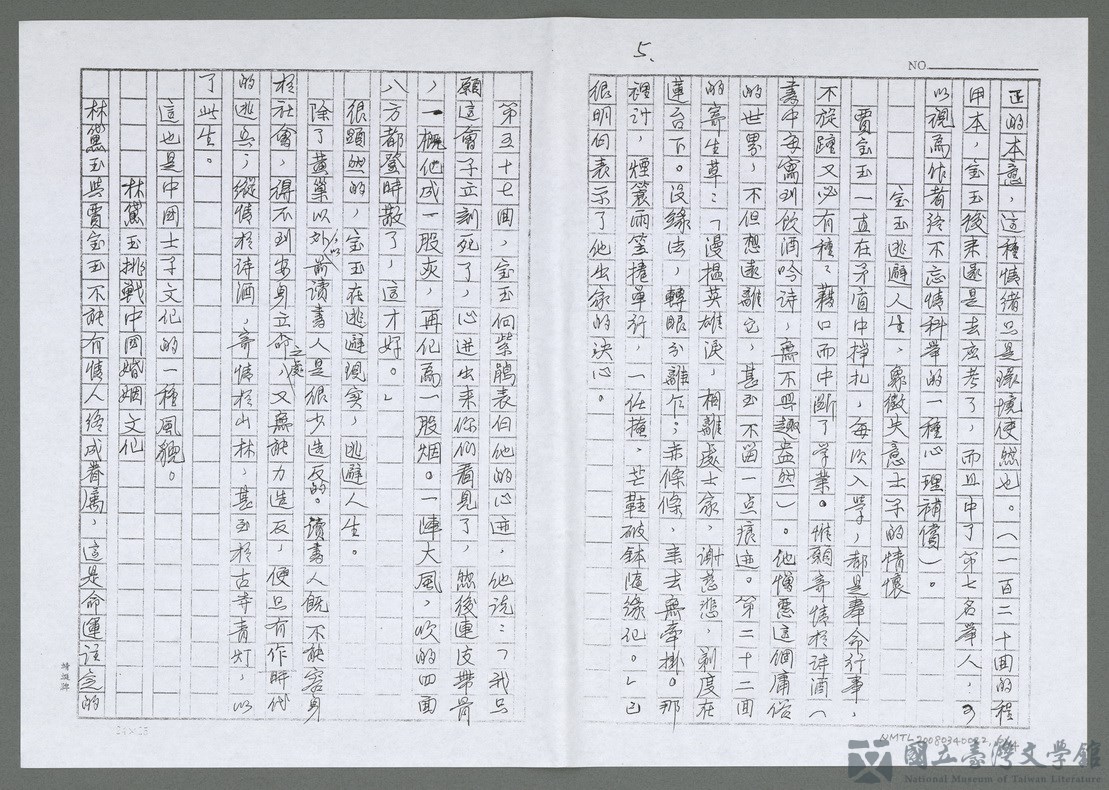 5.
NO.
正的本意，這種情緒只是環境使然也。（一百二十回的程
甲本，宝玉後來還是去应考了，而且中了第七名举人，可
以視為作者終不忘情科举的一種心理補償）。
宝玉逃避人生，象徵失意士子的情懷
賈宝玉一直在矛盾中掙扎，每次入學，都是奉命行事，
不旋踵又必有種種藉口而中斷了学業。惟願寄情於詩酒（
書中每寫到飲酒吟诗，無不興趣盎然）。他憎惡這個庸俗
的世界，不但想遠離它，甚至不留一点痕迹。第二十二回
的寄生草：「漫揾英雄淚，相離處士家，谢慈悲，剃度在
蓮台下。没緣法，轉眼分離乍；赤條條，来去無牵掛。那
裡討，煙簑雨笠捲單行，一任俺，芒鞋破鉢隨緣化。」已
很明白表示了他出家的決心。
第五十七回，宝玉向紫鵑表白他的心迹，他说：「我只
願這會子立刻死了，心迸出来你們看見了，然後連皮帶骨
，一概化成一股灰，再化為一股烟。一陣大風，吹的四面
八方都登時散了，這才好。」
很顕然的，宝玉在逃避現实，逃避人生。
除了黃巢以外，以前读書人是很少造反的。读書人既不能容身
於社會，得不到安身立命之處，又無能力造反，便只有作時代
的逃兵；縱情於诗酒，寄情於山林，甚至於古寺青灯，以
了此生。
這也是中国士子文化的一種風貌。
林黛玉挑戰中国婚姻文化
林黛玉與賈宝玉不能有情人终成眷屬，這是命運註定的
25×25
NMTL20080340082
國立臺灣文學館
National Museum of Taiwan Literature